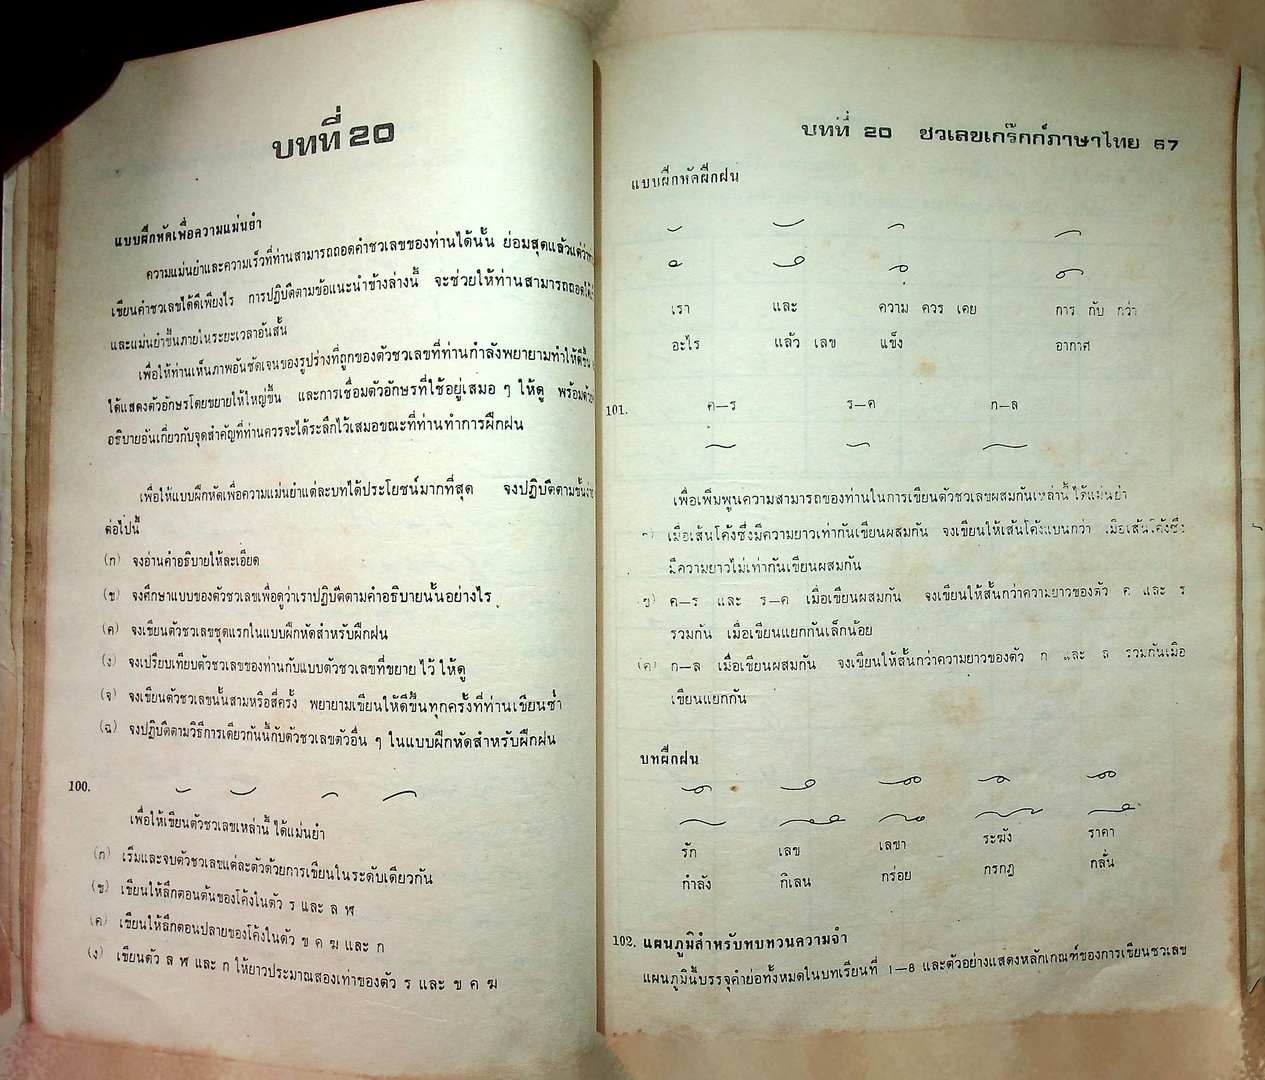 บทที่ 20
แบบฝึกหัดเพื่อความแม่นยำ
ความแม่นยำและความเร็วที่ท่านสามารถถอดคำชวเลขของท่านได้นั้น ย่อมสุดแล้วแต่ว่า
เขียนคำชวเลขได้ดีเพียงไร การปฏิบัติตามข้อแนะนำข้างล่างนี้ จะช่วยให้ท่านสามารถถอด
และแม่นยำขึ้นภายในระยะเวลาอันสั้น
เพื่อให้ท่านเห็นภาพอันชัดเจนของรูปร่างที่ถูกของตัวชวเลขที่ท่านกำลังพยายามทำให้ดีขึ้น
ได้แสดงตัวอักษรโดยขยายให้ใหญ่ขึ้น และการเชื่อมตัวอักษรที่ใช้อยู่เสมอ ๆ ให้ดู พร้อมด้วย
อธิบายอันเกี่ยวกับจุดสำคัญที่ท่านควรจะได้ระลึกไว้เสมอขณะที่ท่านทำการฝึกฝน
เพื่อให้แบบฝึกหัดเพื่อความแม่นยำแต่ละบทได้ประโยชน์มากที่สุด จงปฏิบัติตาม
ต่อไปนี้
(ก) จงอ่านคำอธิบายให้ละเอียด
(ข) จงศึกษาแบบของตัวชวเลขเพื่อดูว่าเราปฏิบัติตามคำอธิบายนั้นอย่างไร
(ค) จงเขียนตัวชวเลขชุดแรกในแบบฝึกหัดสำหรับฝึกฝน
(ง) จงเปรียบเทียบตัวชวเลขของท่านกับแบบตัวชวเลขที่ขยายไว้ให้ดู
(จ) จงเขียนตัวชวเลขนั้นสามหรือสี่ครั้ง พยายามเขียนให้ดีขึ้นทุกครั้งที่ท่านเขียนซ้ำ
(ฉ) จงปฏิบัติตามวิธีการเดียวกันนี้กับตัวชวเลขตัวอื่น ๆ ในแบบฝึกหัดสำหรับฝึกฝน
100.
เพื่อให้เขียนตัวชวเลขเหล่านี้ได้แม่นยำ
(ก) เริ่มและจบตัวชวเลขแต่ละตัวด้วยการเขียนในระดับเดียวกัน
(ข) เขียนให้ลึกตอนต้นของโค้งในตัว ร และ ล ฬ
(ค) เขียนให้ลึกตอนปลายของโค้งในตัว ข ค ฆ และ ก
(ง) เขียนตัว ล ฬ และ ก ให้ยาวประมาณสองเท่าของตัว ร และ ข ค ฆ
บทที่ 20 ชวเลขเกร๊กก์ภาษาไทย 67
แบบฝึกหัดฝึกฝน
เรา และ ความ ควร เคย การ กับ กว่า
อะไร แล้ว เลข แข็ง อากาศ
101. ค—ร ร—ค ก—ล
เพื่อเพิ่มพูนความสามารถของท่านในการเขียนตัวชวเลขผสมกันเหล่านี้ได้แม่นยำ
เมื่อเส้นโค้งซึ่งมีความยาวเท่ากันเขียนผสมกัน จงเขียนให้เส้นโค้งแบนกว่า เมื่อเส้นโค้งซึ่ง
มีความยาวไม่เท่ากันเขียนผสมกัน
(ข) ค—ร และ ร—ค เมื่อเขียนผสมกัน จงเขียนให้สั้นกว่าความยาวของตัว ค และ ร
รวมกัน เมื่อเขียนแยกกันเล็กน้อย
(ค) ก—ล เมื่อเขียนผสมกัน จงเขียนให้สั้นกว่าความยาวของตัว ก และ ล รวมกันเมื่อ
เขียนแยกกัน
บทฝึกฝน
รัก เลข เลขา ระฆัง ราคา
กำลัง กิเลน กร่อย กรกฎ กลั่น
102. แผนภูมิสำหรับทบทวนความจำ
แผนภูมินี้บรรจุคำย่อทั้งหมดในบทเรียนที่ 1—8 และตัวอย่างแสดงหลักเกณฑ์ของการเขียนชวเลข